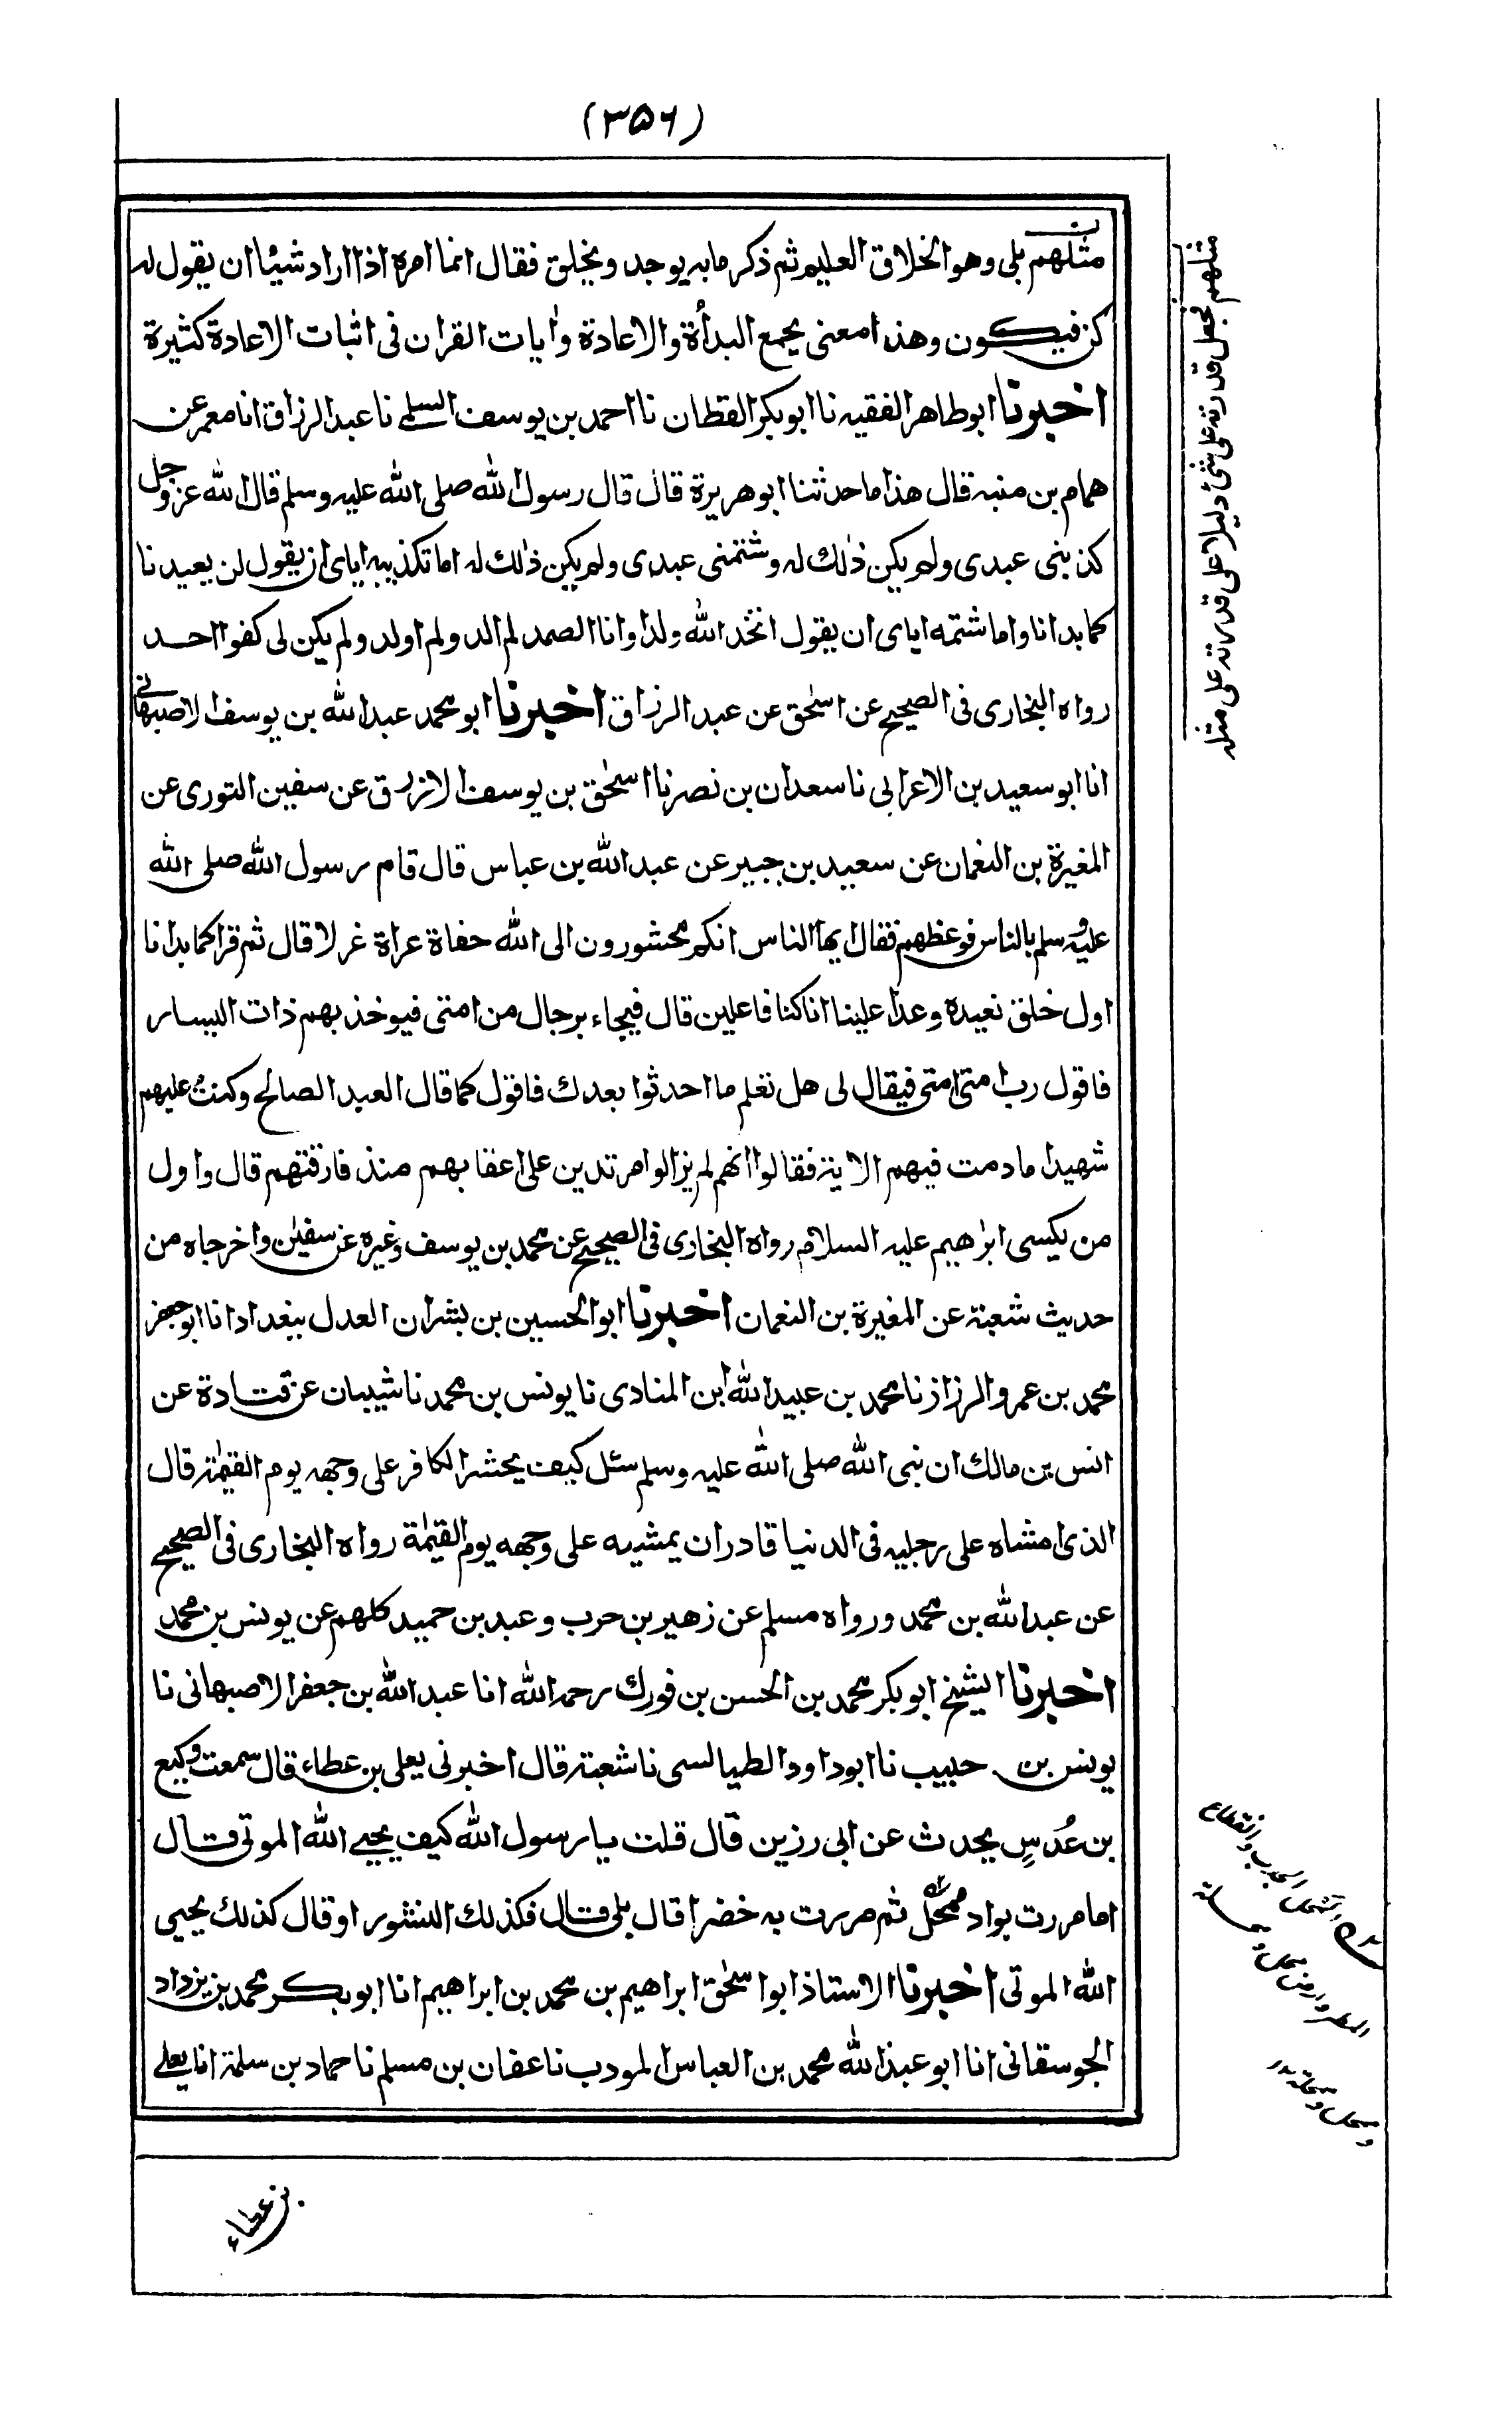 (٣٥٦)
مثلهم بلى وهو الخلاق العليم ثم ذكر ما به يوجد ويخلق فقال انما امره اذا اراد شيئا ان يقول له
كن فيكون وهذا معنى يجمع البدأة والاعادة واٰيات القران فى اثبات الاعادة كثيرة
اخبرنا ابو طاهر الفقيه نا ابو بكر القطان نا احمد بن يوسف السلمے نا عبد الرزاق انا معمر عن
همام بن منبه قال هذا ما حدثنا ابو هريرة قال قال رسول الله صلى الله عليه وسلم قال الله عز وجل
كذبنى عبدى ولم يكن ذٰلك له وشتمنى عبدى ولم يكن ذٰلك له اما تكذيبه اياى ان يقول لن يعيدنا
كما بدانا واما شتمه اياى ان يقول اتخذ الله ولدا وانا الصمد لم الد ولم اولد ولم يكن لى كفوا احد
رواه البخارى فى الصحيح عن اسحٰق عن عبد الرزاق اخبرنا ابو محمد عبد الله بن يوسف الاصبهانے
انا ابو سعيد بن الاعرابى نا سعدان بن نصر نا اسحٰق بن يوسف الازرق عن سفين الثورى عن
المغيرة بن النعمان عن سعيد بن جبير عن عبد الله بن عباس قال قام رسول الله صلى الله
عليه وسلم بالناس فوعظهم فقال ايها الناس انكم محشورون الى الله حفاة عراة غرلا قال ثم قرا كما بدانا
اول خلق نعيده وعدا علينا انا كنا فاعلين قال فيجاء برجال من امتى فيوخذ بهم ذات اليسار
فاقول رب امتى امتى فيقال لى هل تعلم ما احدثوا بعدك فاقول كما قال العبد الصالح وكنتُ عليهم
شهيدا ما دمت فيهم الاية فقالوا انهم لم يزالوا مرتدين على اعقابهم منذ فارقتهم قال واول
من يكسى ابرٰهيم عليه السلام رواه البخارى فى الصحيح عن محمد بن يوسف وغيره عن سفيٰن واخرجاه من
حديث شعبة عن المغيرة بن النعمان اخبرنا ابو الحسين بن بشران العدل ببغداد انا ابو جعفر
محمد بن عمرو الرزاز نا محمد بن عبيد الله ابن المنادى نا يونس بن محمد نا شيبان عن قتادة عن
انس بن مالك ان نبى الله صلى الله عليه وسلم سئل كيف يحشر الكافر على وجهه يوم القيٰمة قال
الذى امشاه على رجليه فى الدنيا قادر ان يمشيه على وجهه يوم القيٰمة رواه البخارى فى الصحيح
عن عبد الله بن محمد ورواه مسلم عن زهير بن حرب وعبد بن حميد كلهم عن يونس بن محمد
اخبرنا الشيخ ابو بكر محمد بن الحسن بن فورك رحمه الله انا عبد الله بن جعفر الاصبهانى نا
يونس بن حبيب نا ابو داود الطيالسى نا شعبة قال اخبرنى يعلى بن عطاء قال سمعت وكيع
بن عُدسٍ يحدث عن ابى رزين قال قلت يا رسول الله كيف يحيے الله الموتى قال
اما مررت بواد ممحلٍ ثم مررت به خضرا قال بلى قال فكذلك النشور او قال كذلك يحيى
الله الموتى اخبرنا الاستاذ ابو اسحٰق ابراهيم بن محمد بن ابراهيم انا ابو بكر محمد بن يزداد
الجوسقانى انا ابو عبد الله محمد بن العباس المودب نا عفان بن مسلم نا حماد بن سلمة انا يعلے
بن عطاء
مثلهم فجعل قدرته على شئ دليلا على قدرته على مثله
المحل الجدب وانقطاع
المطر وارض محل و